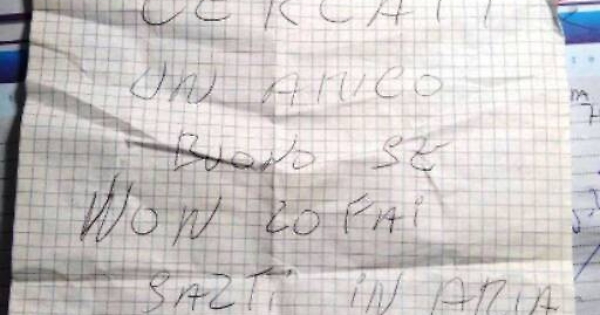 CERCATI
UN AMICO
BUONO SE
NON LO FAI
SALTI IN ARIA